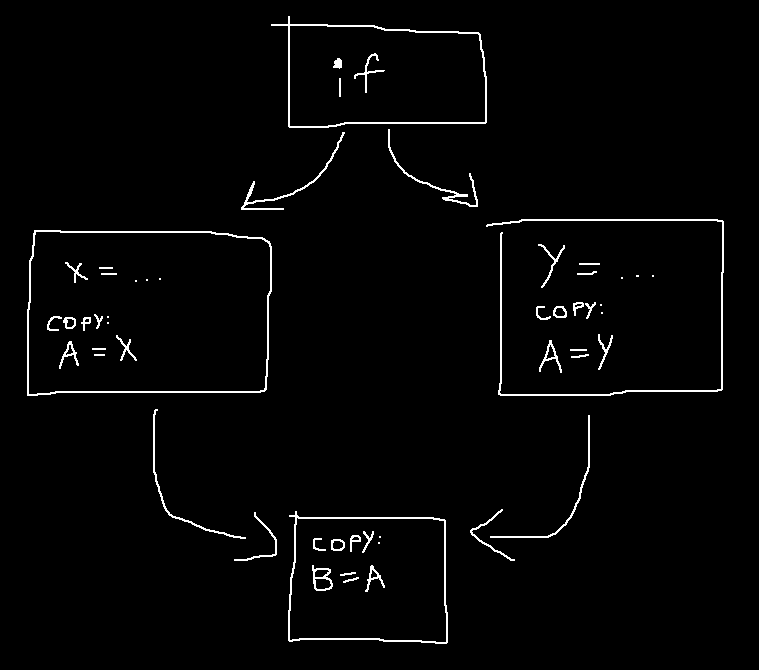 if
x = ...
COPY:
A = X
Y = ...
COPY:
A = Y
COPY:
B = A